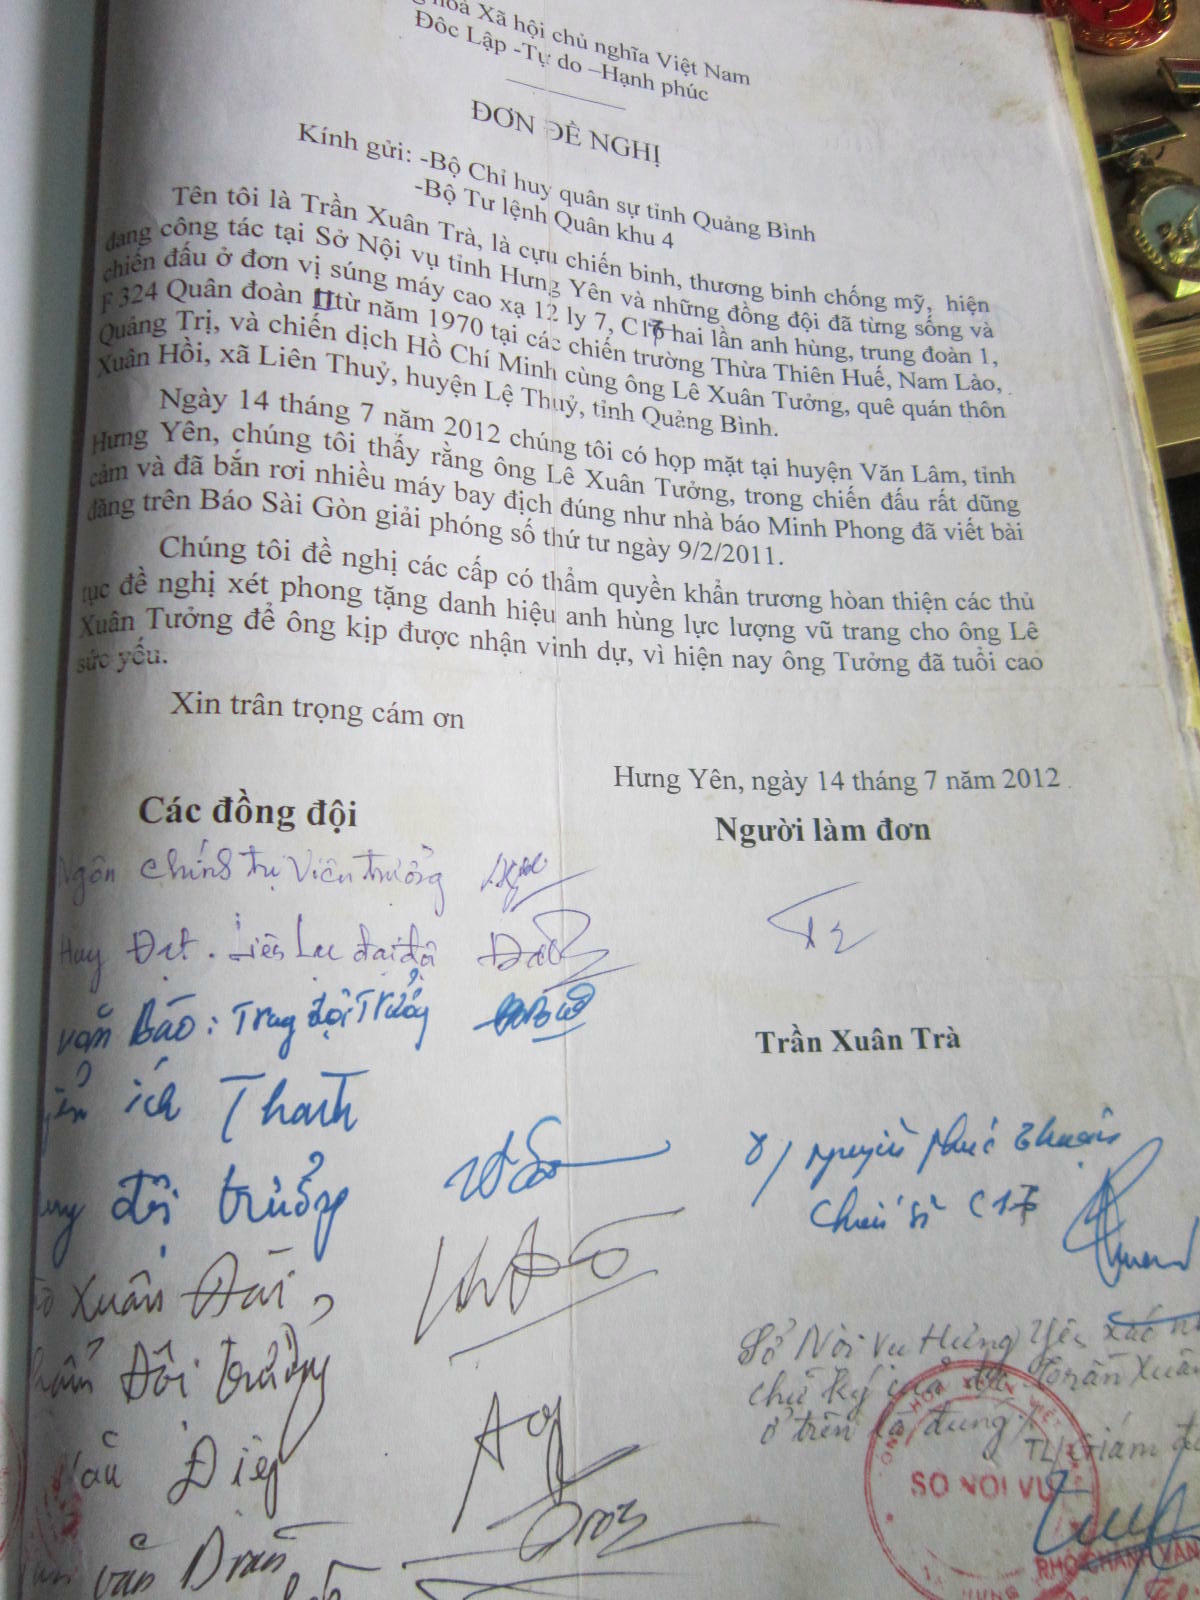 hoà Xã hội chủ nghĩa Việt Nam
Đôc Lập -Tự do –Hạnh phúc
ĐƠN ĐỀ NGHỊ
Kính gửi: -Bộ Chỉ huy quân sự tỉnh Quảng Bình
-Bộ Tư lệnh Quân khu 4
Tên tôi là Trần Xuân Trà, là cựu chiến binh, thương binh chống mỹ, hiện
đang công tác tại Sở Nội vụ tỉnh Hưng Yên và những đồng đội đã từng sống và
chiến đấu ở đơn vị súng máy cao xạ 12 ly 7, C17 hai lần anh hùng, trung đoàn 1,
F 324 Quân đoàn II từ năm 1970 tại các chiến trường Thừa Thiên Huế, Nam Lào,
Quảng Trị, và chiến dịch Hồ Chí Minh cùng ông Lê Xuân Tưởng, quê quán thôn
Xuân Hồi, xã Liên Thuỷ, huyện Lệ Thuỷ, tỉnh Quảng Bình.
Ngày 14 tháng 7 năm 2012 chúng tôi có họp mặt tại huyện Văn Lâm, tỉnh
Hưng Yên, chúng tôi thấy rằng ông Lê Xuân Tưởng, trong chiến đấu rất dũng
cảm và đã bắn rơi nhiều máy bay địch đúng như nhà báo Minh Phong đã viết bài
đăng trên Báo Sài Gòn giải phóng số thứ tư ngày 9/2/2011.
Chúng tôi đề nghị các cấp có thẩm quyền khẩn trương hòan thiện các thủ
tục đề nghị xét phong tặng danh hiệu anh hùng lực lượng vũ trang cho ông Lê
Xuân Tưởng để ông kịp được nhận vinh dự, vì hiện nay ông Tưởng đã tuổi cao
sức yếu.
Xin trân trọng cám ơn
Hưng Yên, ngày 14 tháng 7 năm 2012
Các đồng đội
Người làm đơn
Ngôn chính trị viên trưởng
Huy Đạt. Liên Lạc đại đội
văn Bảo: Trung đội Trưởng
Trần Xuân Trà
ích Thanh
đội trưởng
Nguyễn Phúc Thuần
Chiến sĩ C17
Xuân Đài,
Đội trưởng
Sở Nội Vụ Hưng Yên xác
chữ ký của Trần Xuân
ở trên là đúng
TL Giám đ
Điệp
văn
SỞ NỘI VỤ
PHÓ CHÁNH VĂN